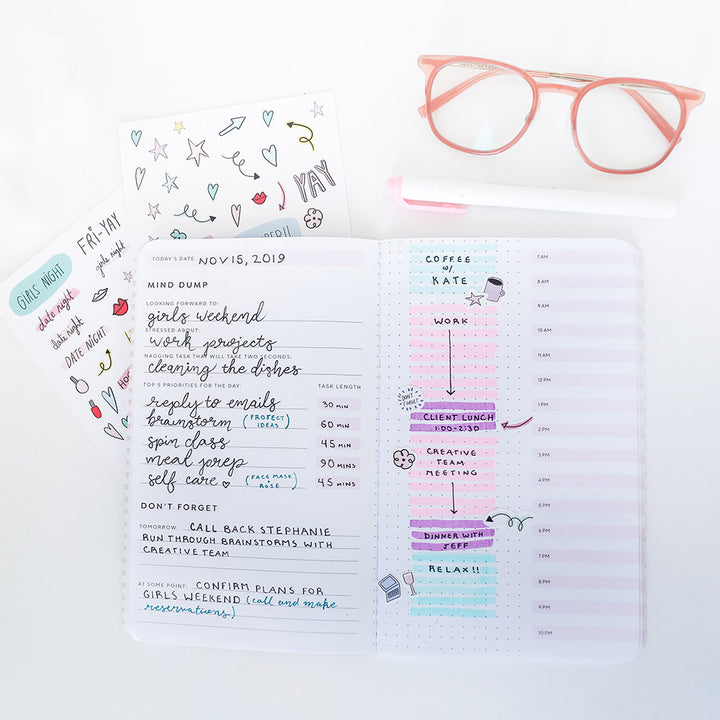 YAY
FRI-YAY
girls night
GIRLS NIGHT
date night
date night
DATE NIGHT
TODAY'S DATE: NOV 15, 2019
MIND DUMP
LOOKING FORWARD TO:
girls weekend
STRESSED ABOUT:
work projects
NAGGING TASK THAT WILL TAKE TWO SECONDS:
cleaning the dishes
TOP 5 PRIORITIES FOR THE DAY: TASK LENGTH
reply to emails 30 MIN
brainstorm (PROJECT IDEAS) 60 MIN
spin class 45 MIN
meal prep 90 MINS
self care (FACE MASK + ROSE) 45 MINS
DON'T FORGET
TOMORROW: CALL BACK STEPHANIE
RUN THROUGH BRAINSTORMS WITH
CREATIVE TEAM
AT SOME POINT: CONFIRM PLANS FOR
GIRLS WEEKEND (call and make
reservations)
COFFEE
W/
KATE
WORK
DON'T
FORGET
CLIENT LUNCH
1:00-2:30
CREATIVE
TEAM
MEETING
DINNER WITH
JEFF
RELAX!!
7 AM
8 AM
9 AM
10 AM
11 AM
12 PM
1 PM
2 PM
3 PM
4 PM
5 PM
6 PM
7 PM
8 PM
9 PM
10 PM